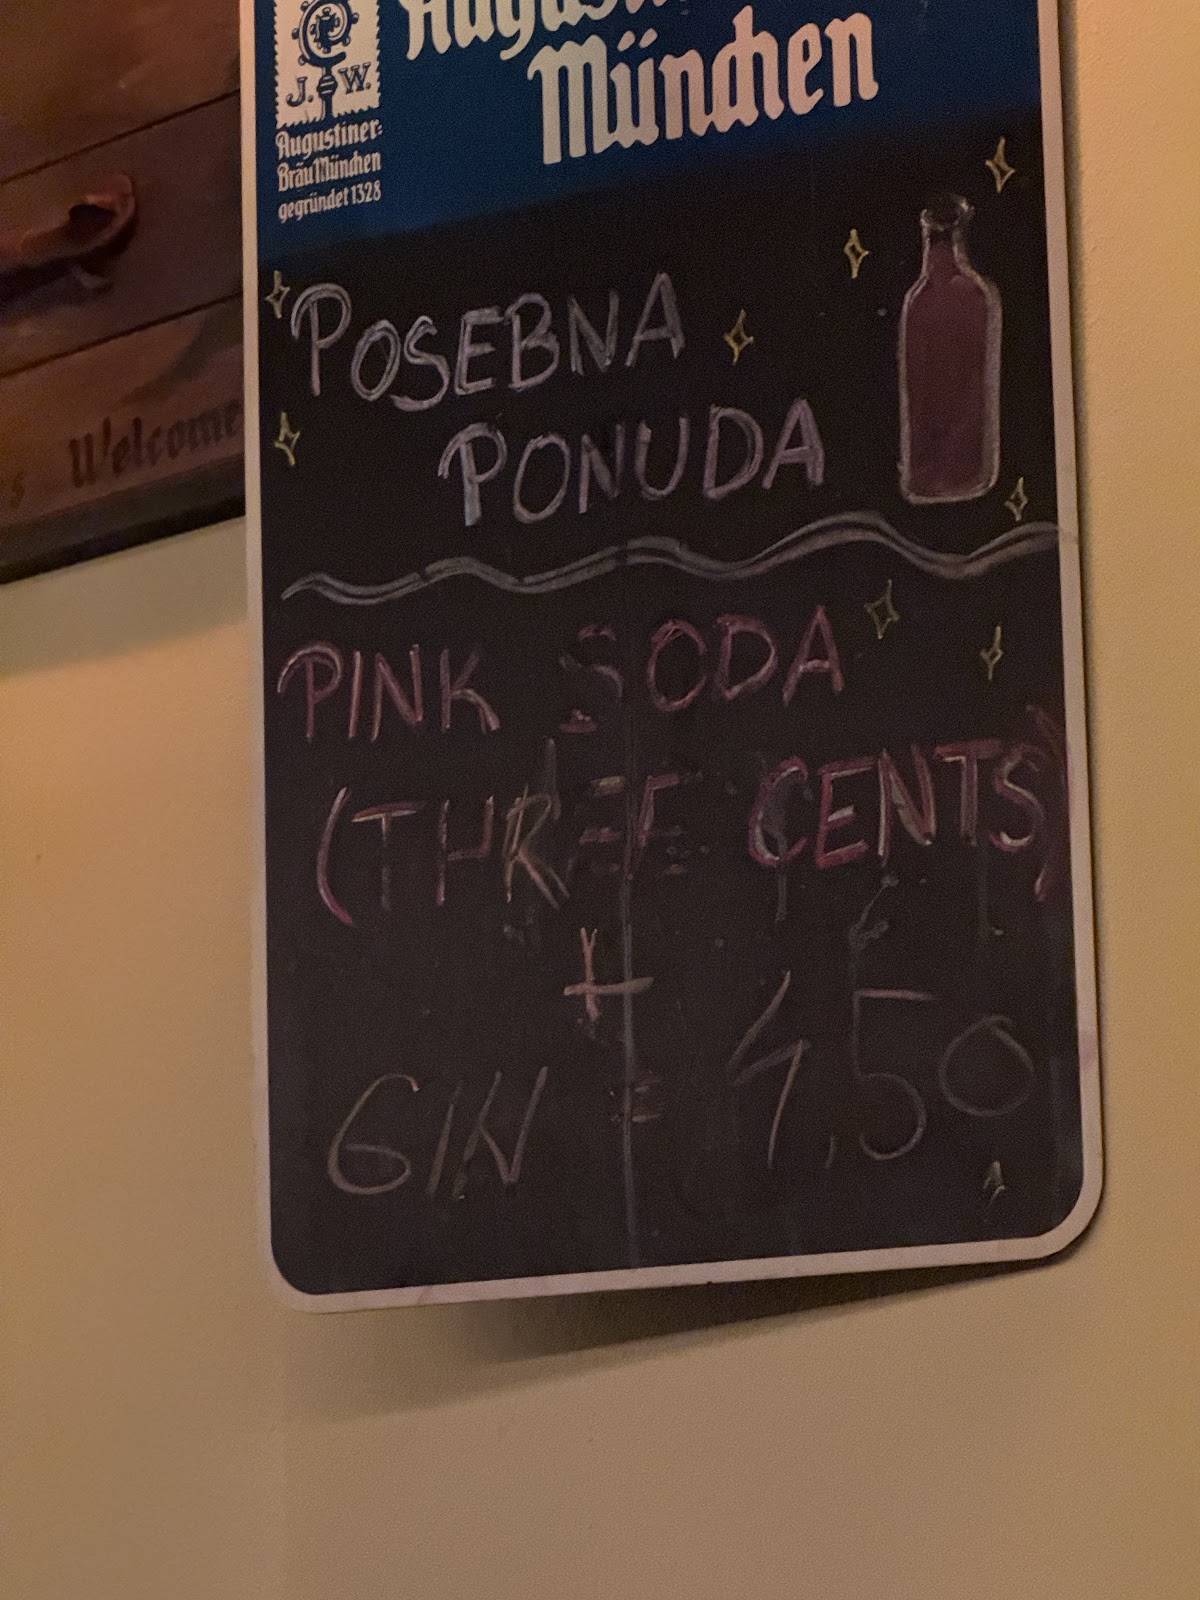 München
J. W.
Augustiner-
Bräu München
gegründet 1328
Welcome
POSEBNA
PONUDA
PINK SODA
(THREE CENTS)
+
GIN = 4,50